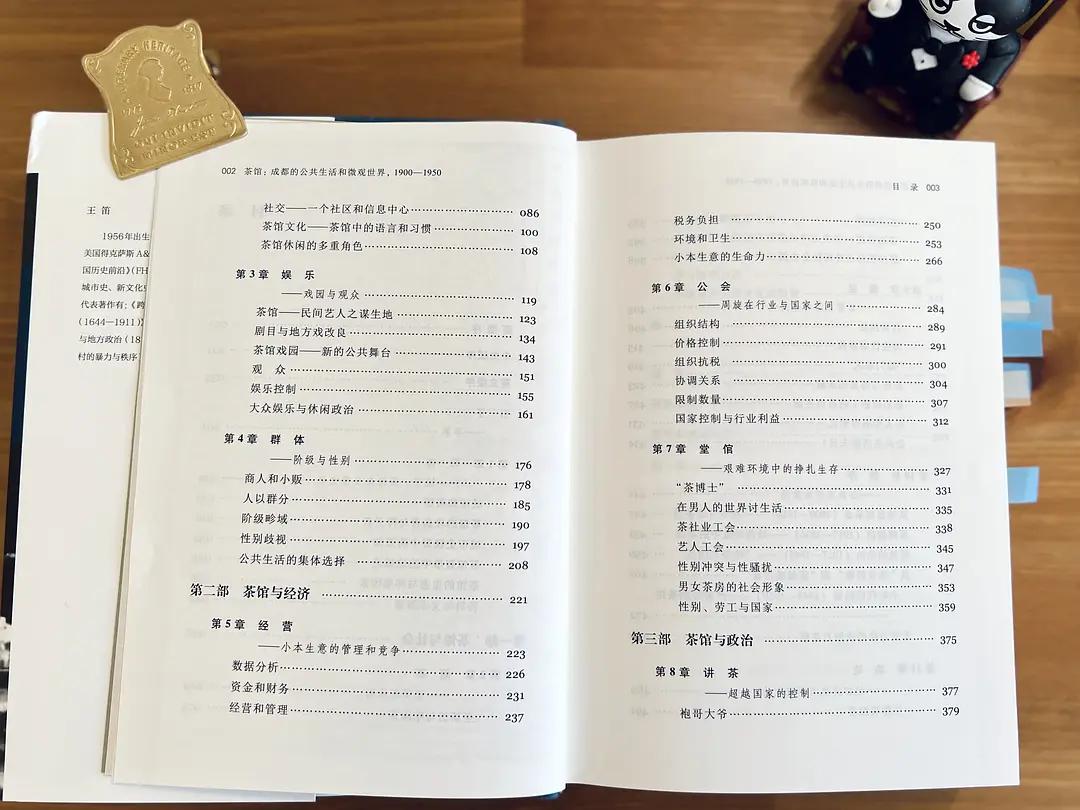 王 笛
1956年出生
美国得克萨斯 A&
国历史前沿》(FH
城市史、新文化史
代表著作有:《跨
(1644—1911)》
与地方政治(18
村的暴力与秩序
002 茶馆:成都的公共生活和微观世界,1900—1950
社交——一个社区和信息中心 086
茶馆文化——茶馆中的语言和习惯 100
茶馆休闲的多重角色 108
第3章 娱 乐
——戏园与观众 119
茶馆——民间艺人之谋生地 123
剧目与地方戏改良 134
茶馆戏园——新的公共舞台 143
观 众 151
娱乐控制 155
大众娱乐与休闲政治 161
第4章 群 体
——阶级与性别 176
商人和小贩 178
人以群分 185
阶级畛域 190
性别歧视 197
公共生活的集体选择 208
第二部 茶馆与经济 221
第5章 经 营
——小本生意的管理和竞争 223
数据分析 226
资金和财务 231
经营和管理 237
目 录 003
税务负担 250
环境和卫生 253
小本生意的生命力 266
第6章 公 会
——周旋在行业与国家之间 284
组织结构 289
价格控制 291
组织抗税 300
协调关系 304
限制数量 307
国家控制与行业利益 312
第7章 堂 倌
——艰难环境中的挣扎生存 327
“茶博士” 331
在男人的世界讨生活 335
茶社业工会 338
艺人工会 345
性别冲突与性骚扰 347
男女茶房的社会形象 353
性别、劳工与国家 359
第三部 茶馆与政治 375
第8章 讲 茶
——超越国家的控制 377
袍哥大爷 379